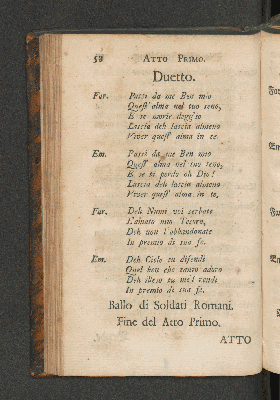 58 ATTO PRIMO.
Duetto.
Far. Parti da me Ben mio
Quest' alma nel tuo seno,
E se morir degg'io
Lascia deh lascia almeno
Viver quest' alma in te.
Em. Parti da me Ben mio
Quest' alma nel tuo seno,
E se ti perdo oh Dio!
Lascia deh lascia almeno
Viver quest' alma in te,
Far. Deh Numi voi serbate
L'amato mio Tesoro,
Deh non l'abbandonate
In premio di sua fe.
Em. Deh Cielo tu difendi
Quel ben che tanto adoro
Deh illeso tu me'l rendi
In premio di sua fe.
Ballo di Soldati Romani.
Fine del Atto Primo.
ATTO